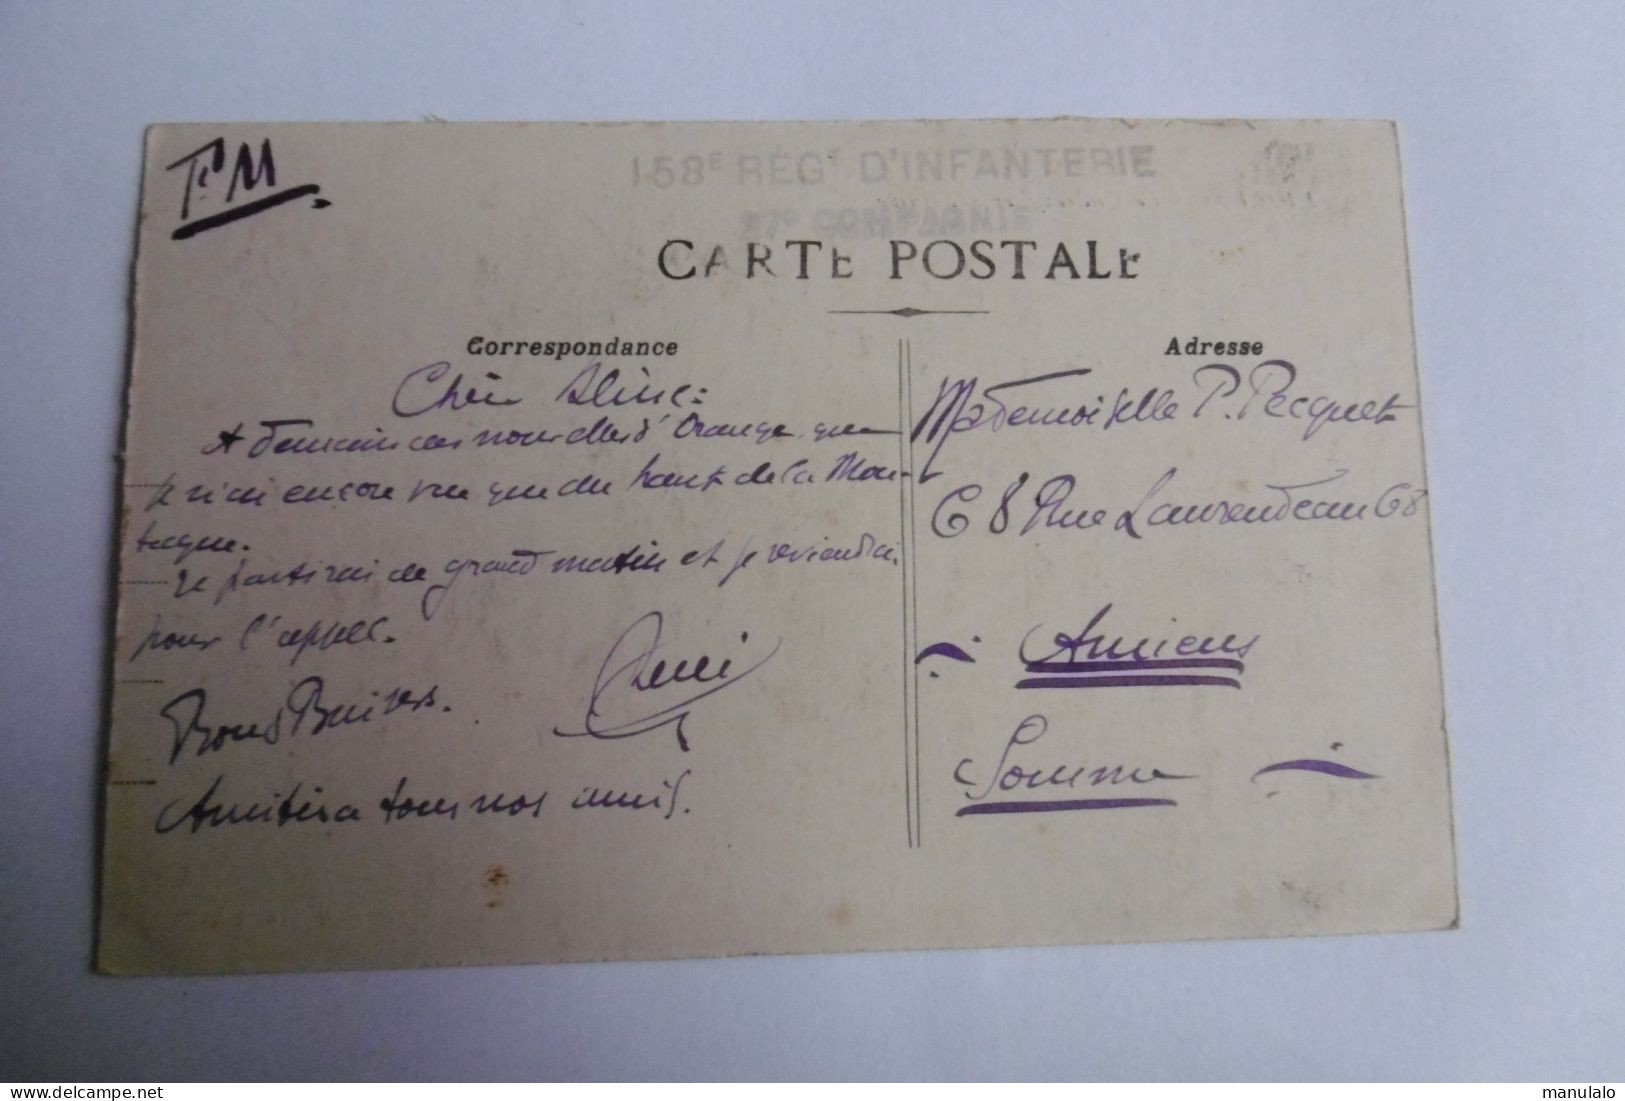 F.M
158E REGT D'INFANTERIE
27e COMPAGNIE
CARTE POSTALE
Correspondance
Adresse
Chère Aline:
A demain des nouvelles d'Orange que
je n'ai encore vu que du haut de la Mon-
tagne.
Je partirai de grand matin et je reviendrai
pour l'appel.
Bons Baisers.
Remi
Amitiés a tous nos amis.
Mademoiselle P. Pecquet
68 Rue Laurendeau 68
Amiens
Somme
DELCAMPE.NET
manulalo